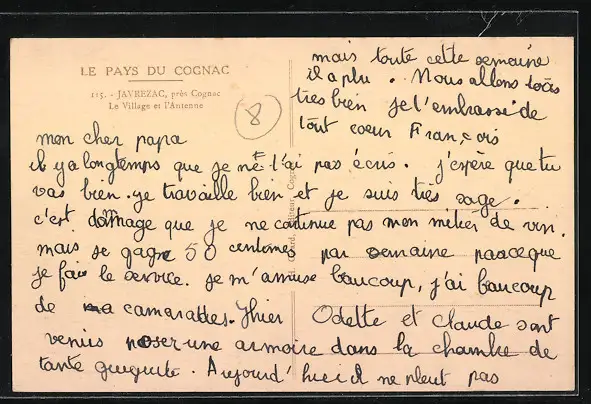 LE PAYS DU COGNAC
115. - JAVREZAC, près Cognac
Le Village et l'Antenne
8
mon cher papa
il y a longtemps que je ne t'ai pas écris. j'espère que tu
vas bien. je travaille bien et je suis très sage.
c'est dommage que je ne continue pas mon métier de vin.
mais je gagne 50 centimes par semaine parceque
je fais le service. je m'amuse beaucoup, j'ai beaucoup
de camarades. Hier Odette et claude sont
venus poser une armoire dans la chambre de
tante guiguite. Aujourd'hui il ne pleut pas
mais toute cette semaine
il a plu. Nous allons tous
très bien je t'embrasse de
tout coeur François